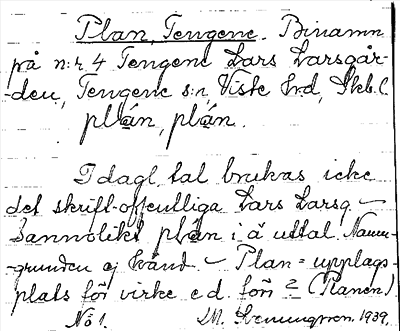 Plan, Tengene. Binamn
på n:r 4 Tengene Lars Larsgår-
-den, Tengene s:n, Viste hrd, Skb.l.
plån, plån.
I dagl. tal brukas icke
det skrift-offentliga Lars Larsg –
Sannolikt plån i ä uttal. Namn-
-grunden ej känd. – Plan = upplags-
plats för virke e.d. förr? (Planen)
No 1. M. 1939.